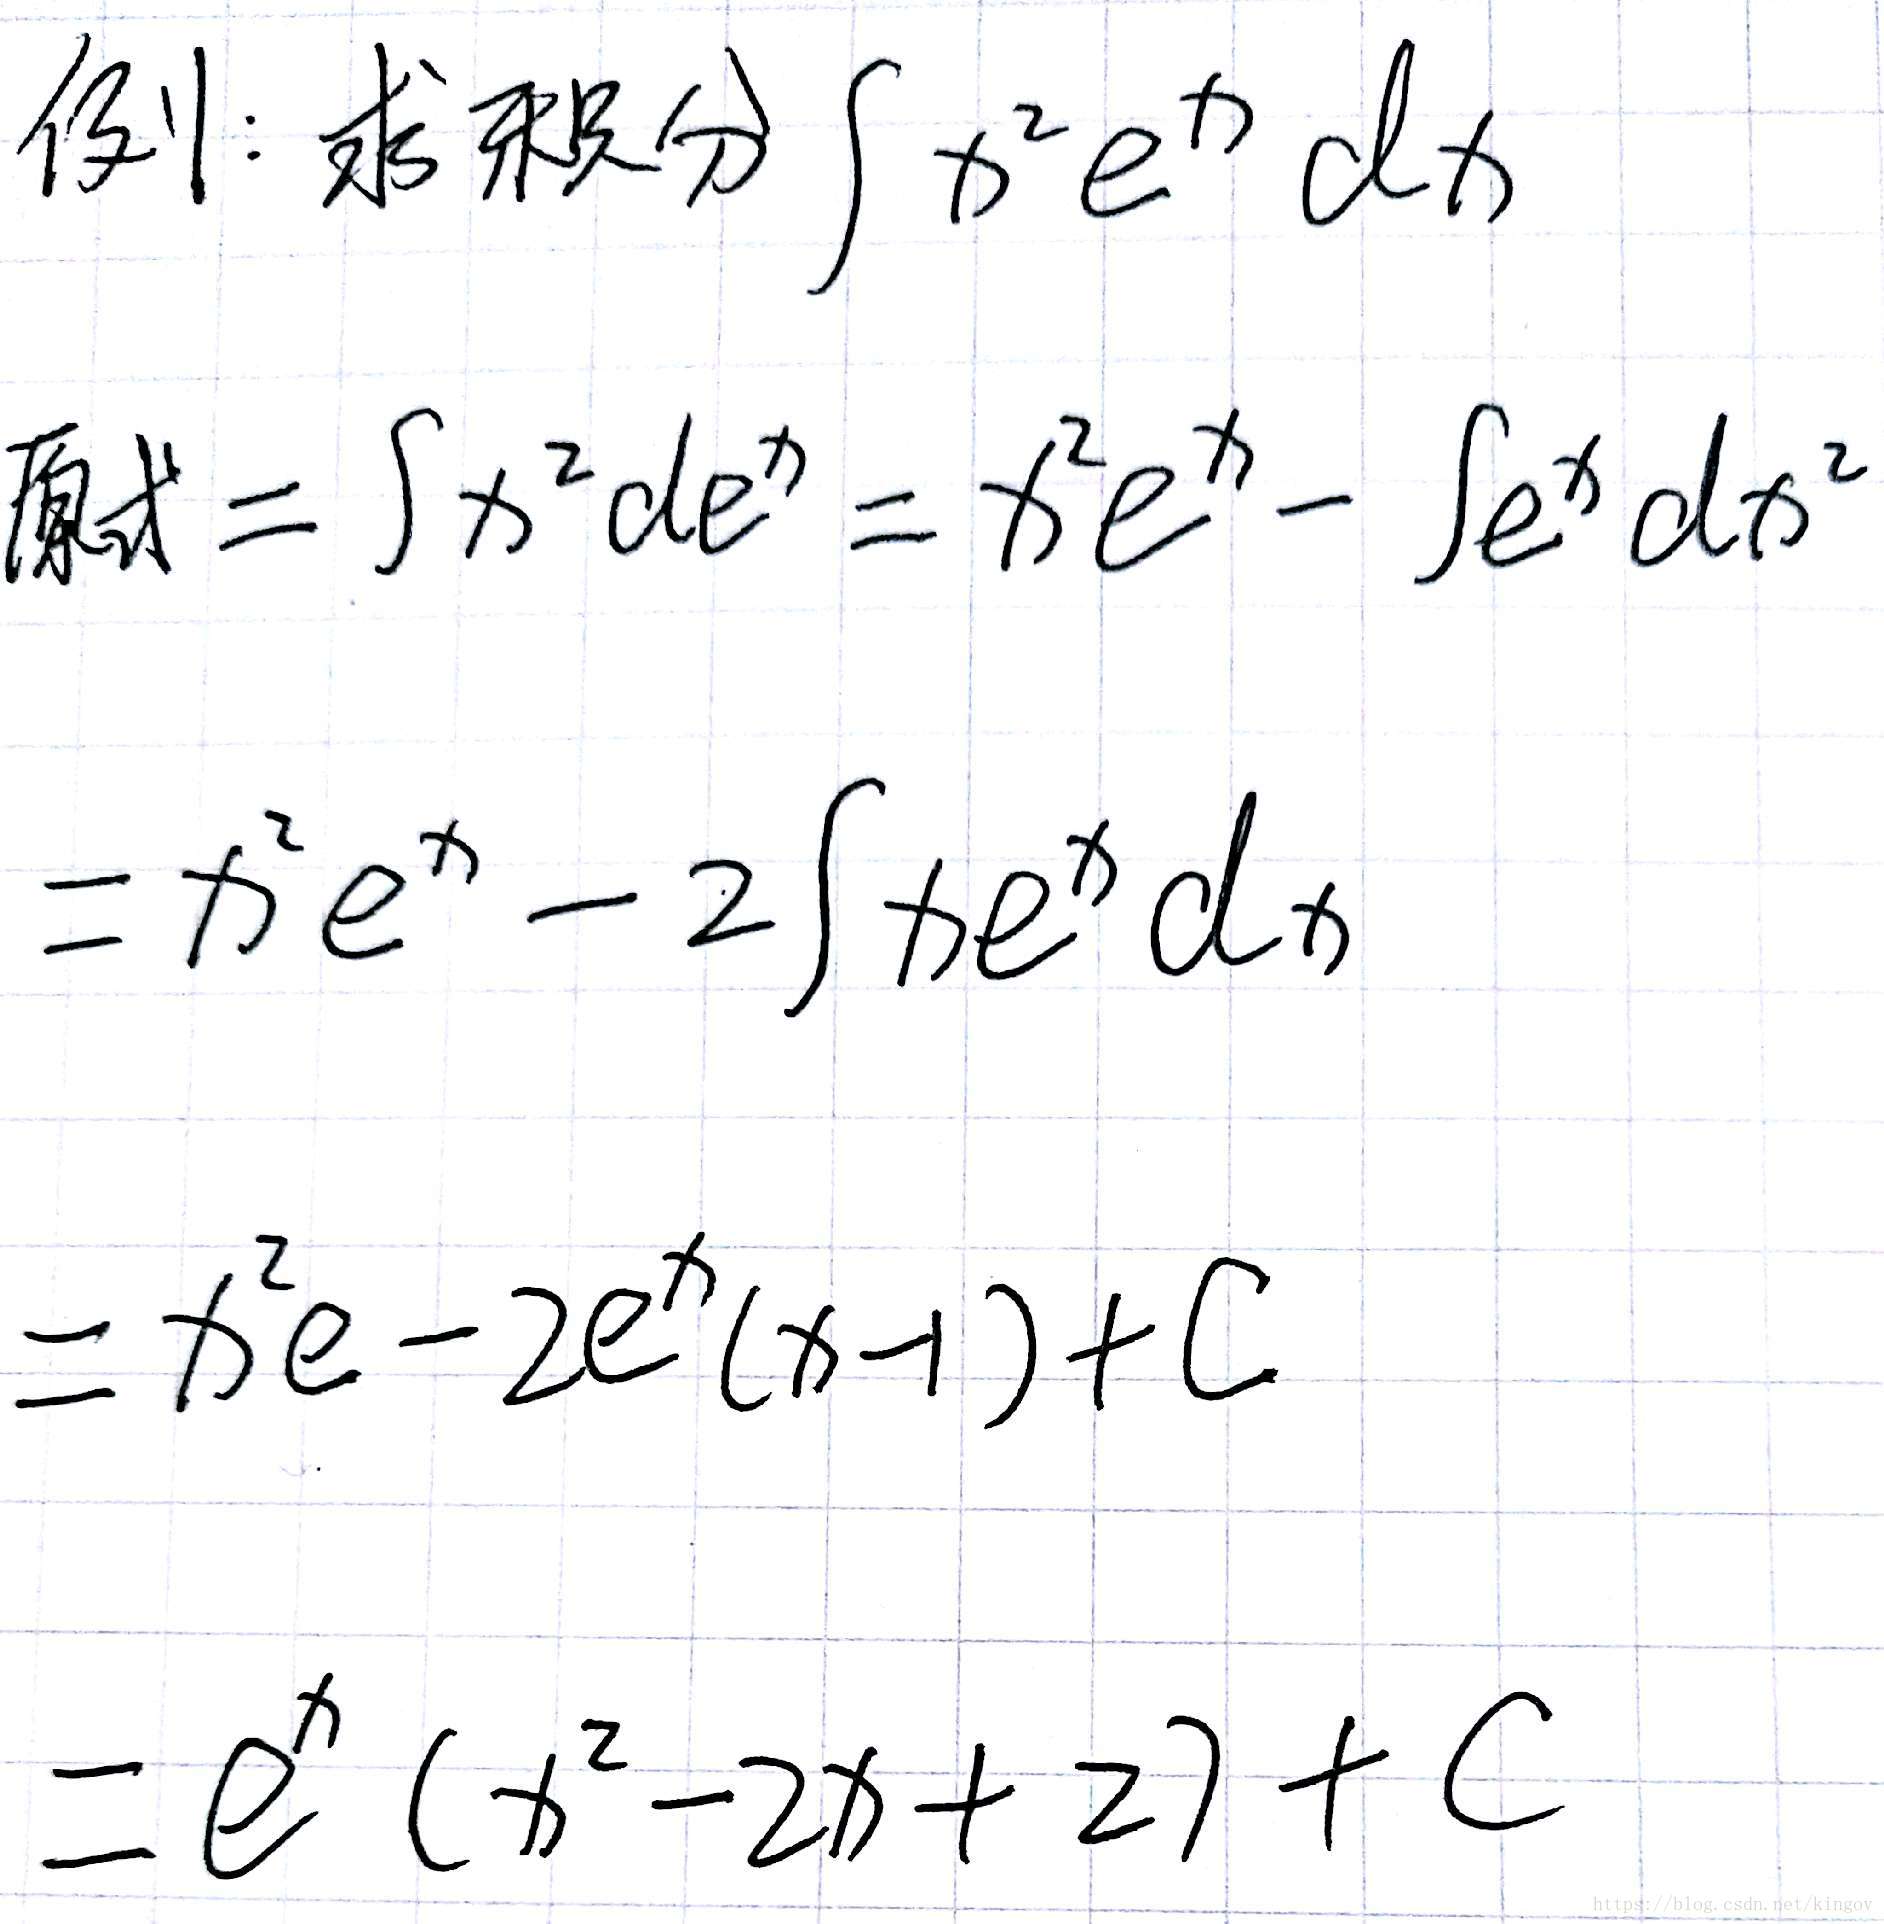 例: 求积分 ∫ x² eˣ dx
原式 = ∫ x² deˣ = x² eˣ - ∫ eˣ dx²
= x² eˣ - 2 ∫ x eˣ dx
= x² e - 2eˣ (x-1) + C
= eˣ (x² - 2x + 2) + C
https://blog.csdn.net/kingov